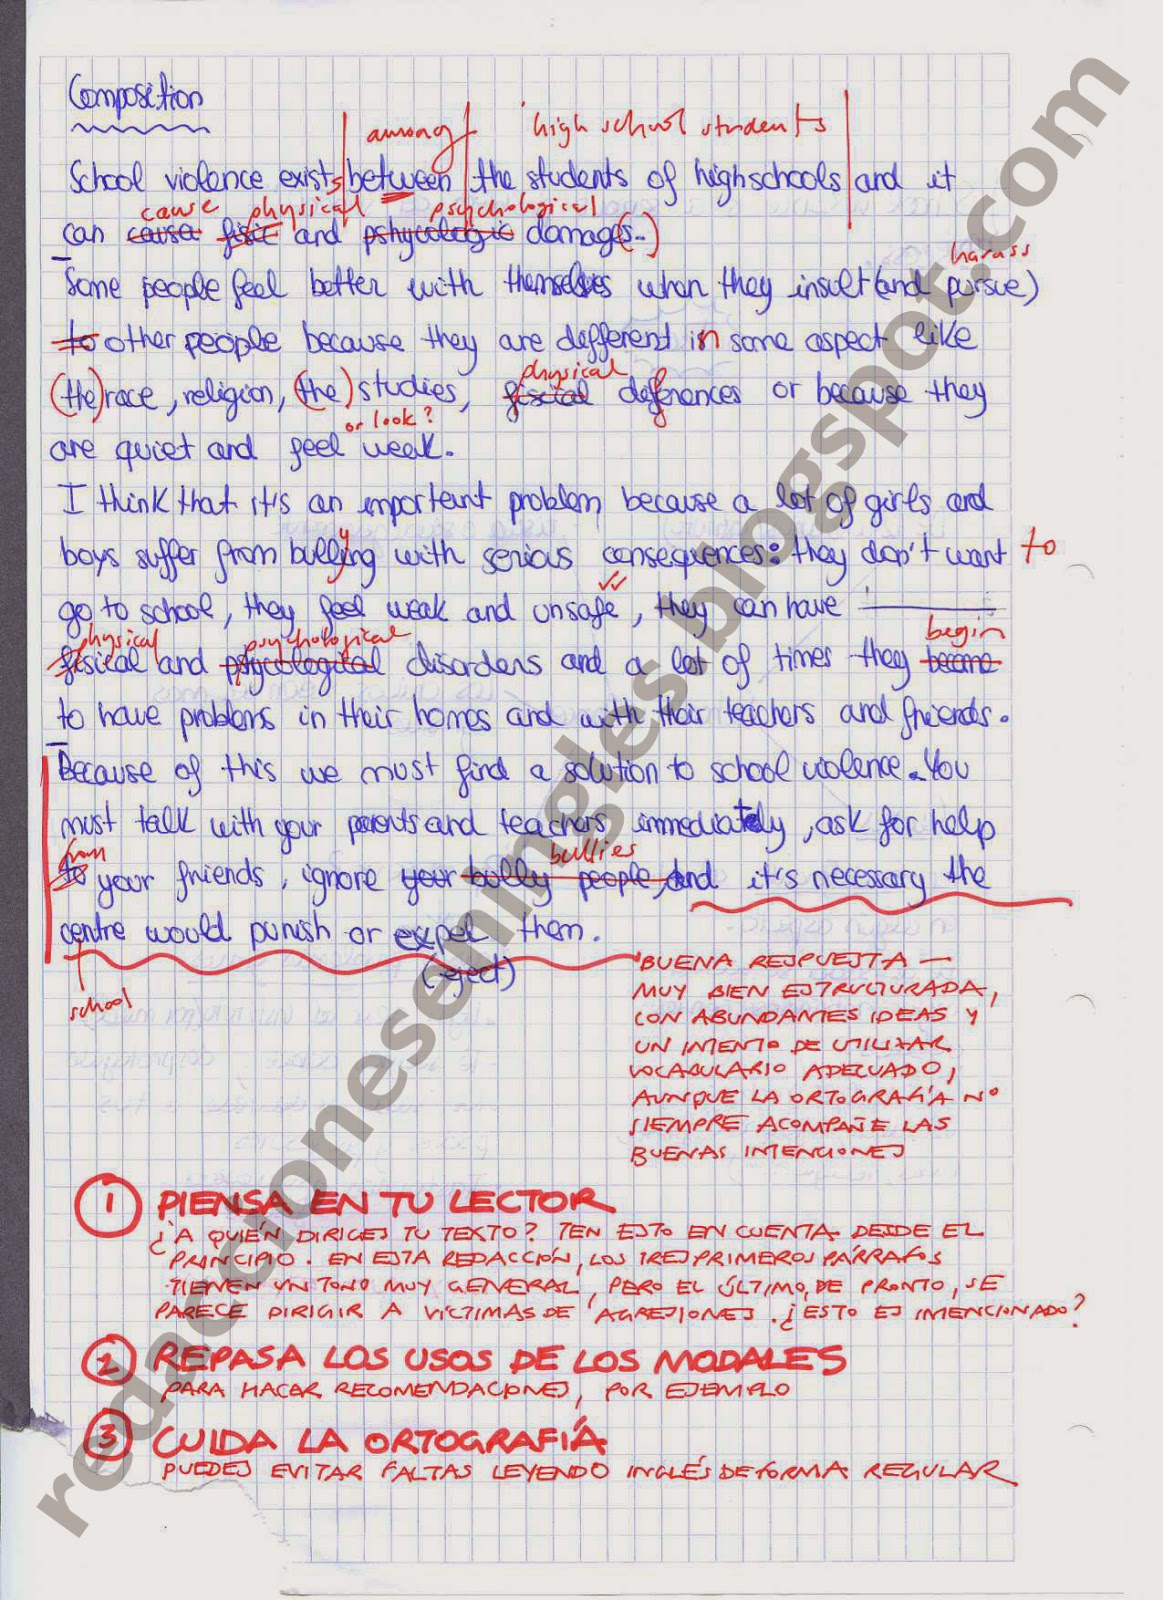 Composition
among high school students
School violence exists between the students of highschools and it
cause physical psychological
can cause fisic and pshycologic damage(s..)
harass
Some people feel better with themselves when they insult (and pursue)
to other people because they are different in some aspect like
physical
(the) race, religion, (the) studies, fisical differences or because they
or look?
are quiet and feel weak.
I think that it's an important problem because a lot of girls and
boys suffer from bullying with serious consequences: they don't want to
go to school, they feel weak and unsafe, they can have
physical psychological begin
fisical and phycological disorders and a lot of times they become
to have problems in their homes and with their teachers and friends.
Because of this we must find a solution to school violence. You
must talk with your parents and teachers immediately, ask for help
from bullies
to your friends, ignore your bully people, and it's necessary the
centre would punish or expel them.
school
(eject)
BUENA RESPUESTA —
MUY BIEN ESTRUCTURADA,
CON ABUNDANTES IDEAS Y
UN INTENTO DE UTILIZAR
VOCABULARIO ADECUADO,
AUNQUE LA ORTOGRAFÍA NO
SIEMPRE ACOMPAÑE LAS
BUENAS INTENCIONES
1 PIENSA EN TU LECTOR
¿A QUIÉN DIRIGES TU TEXTO? TEN ESTO EN CUENTA DESDE EL
PRINCIPIO. EN ESTA REDACCIÓN, LOS TRES PRIMEROS PÁRRAFOS
TIENEN UN TONO MUY GENERAL, PERO EL ÚLTIMO, DE PRONTO, SE
PARECE DIRIGIR A VÍCTIMAS DE AGRESIONES. ¿ESTO ES INTENCIONADO?
2 REPASA LOS USOS DE LOS MODALES
PARA HACER RECOMENDACIONES, POR EJEMPLO
3 CUIDA LA ORTOGRAFÍA
PUEDES EVITAR FALTAS LEYENDO INGLÉS DE FORMA REGULAR
redaccioneseningles.blogspot.com